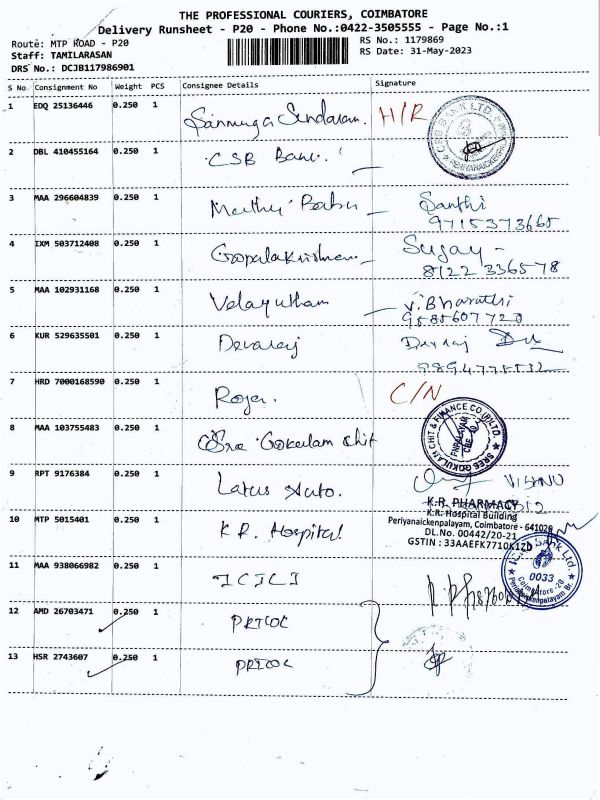 THE PROFESSIONAL COURIERS, COIMBATORE
Delivery Runsheet - P20 - Phone No.:0422-3505555 - Page No.:1
Route: MTP ROAD - P20
Staff: TAMILARASAN
DRS No.: DCJB117986901
RS No.: 1179869
RS Date: 31-May-2023
S No Consignment No Weight PCS Consignee Details Signature
1 EDQ 25136446 0.250 1 H/R
2 DBL 410455164 0.250 1 CSB Bank.
3 MAA 296604839 0.250 1 Santhi
9715373665
4 IXM 503712408 0.250 1 Gopalakrishnan Sujay -
8122 336578
5 MAA 102931168 0.250 1 Velayutham V. Bharathi
9585607720
6 KUR 529635501 0.250 1 Devaraj
9894775532
7 HRD 7000168590 0.250 1 Roja. C/N
8 MAA 103755483 0.250 1 Sree Gokulam chit
SREE GOKULAM CHIT & FINANCE CO (P) LTD.
CBE
9 RPT 9176384 0.250 1 Auto. VISHNU
K.R. PHARMACY
K.R. Hospital Building
Periyanaickenpalayam, Coimbatore - 641020
DL.No. 00442/20-21
GSTIN : 33AAEFK7710K1ZD
10 MTP 5015401 0.250 1 K.R. Hospital
11 MAA 938066982 0.250 1 ICICI
Bank Ltd.
0033
Coimbatore -20
Periyanaickenpalayam Br.
12 AMD 26703471 0.250 1 PRICOL
13 HSR 2743607 0.250 1 PRICOL